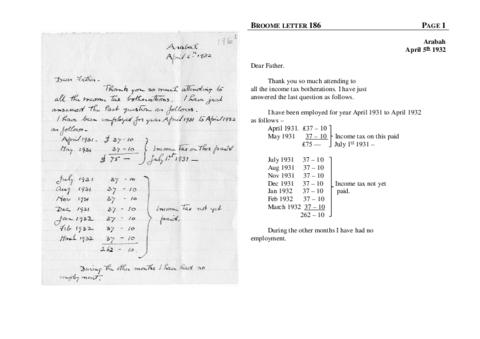 196
Arabah
April 5th 1932
Dear Father.
Thank you so much attending to
all the income tax botherations. I have just
answered the last question as follows.
I have been employed for year April 1931 to April 1932
as follows -
April 1931. £ 37 - 10
May 1931 37 - 10 Income tax on this paid
£ 75 — July 1st 1931 —
July 1931 37 - 10
Aug 1931 37 - 10
Nov 1931 37 - 10
Dec 1931 37 - 10 Income tax not yet
Jan 1932 37 - 10 paid.
Feb 1932 37 - 10
March 1932 37 - 10
262 - 10.
During the other months I have had no
employment.
BROOME LETTER 186 PAGE 1
Arabah
April 5th 1932
Dear Father.
Thank you so much attending to
all the income tax botherations. I have just
answered the last question as follows.
I have been employed for year April 1931 to April 1932
as follows –
April 1931 £37 – 10
May 1931 37 – 10 Income tax on this paid
£75 — July 1st 1931 –
July 1931 37 – 10
Aug 1931 37 – 10
Nov 1931 37 – 10
Dec 1931 37 – 10 Income tax not yet
Jan 1932 37 – 10 paid.
Feb 1932 37 – 10
March 1932 37 – 10
262 – 10
During the other months I have had no
employment.